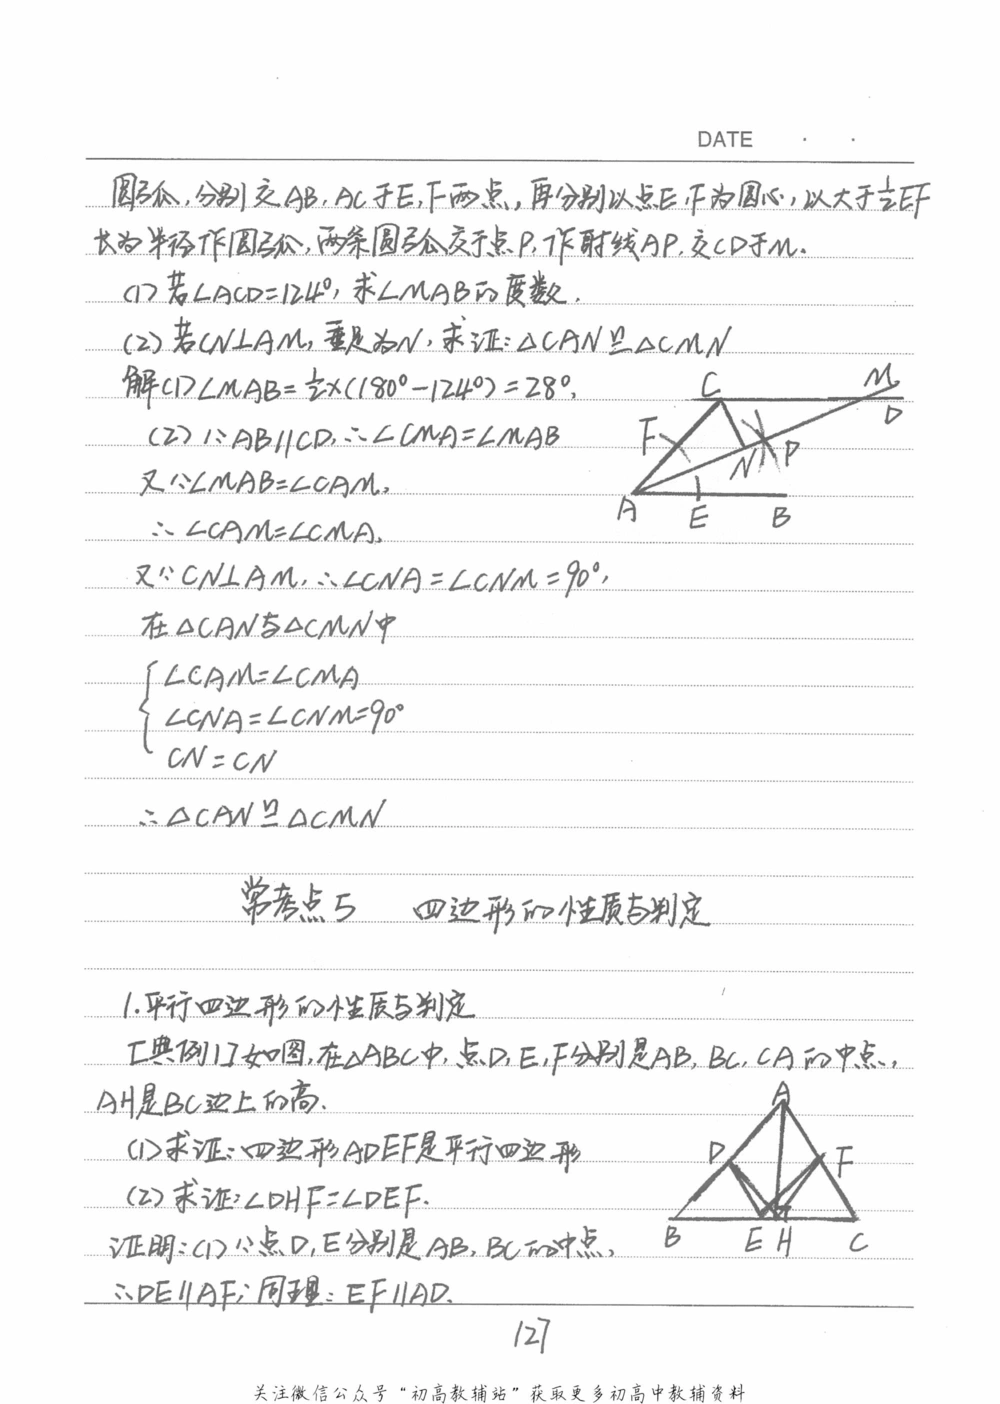 DATE · ·
圆弧,分别交AB,AC于E,F两点,再分别以点E,F为圆心,以大于½EF
长为半径作圆弧,两条圆弧交于点P,作射线AP,交CD于M.
(1)若∠ACD=124°,求∠MAB的度数.
(2)若CN⊥AM,垂足为N,求证:△CAN≌△CMN
解(1)∠MAB=½×(180°-124°)=28°,
(2)∵AB∥CD,∴∠CMA=∠MAB
又∵∠MAB=∠CAM,
∴∠CAM=∠CMA,
又∵CN⊥AM,∴∠CNA=∠CNM=90°,
在△CAN与△CMN中
∠CAM=∠CMA
∠CNA=∠CNM=90°
CN=CN
∴△CAN≌△CMN
C M
D
F
N P
A E B
常考点5 四边形的性质与判定
1.平行四边形的性质与判定
[典例1]如图,在△ABC中,点D,E,F分别是AB,BC,CA的中点,
AH是BC边上的高.
(1)求证:四边形ADEF是平行四边形
(2)求证:∠DHF=∠DEF.
证明:(1)∵点D,E分别是AB,BC的中点,
∴DE∥AF;同理:EF∥AD.
A
D F
B E H C
127
关注微信公众号“初高教辅站”获取更多初高中教辅资料